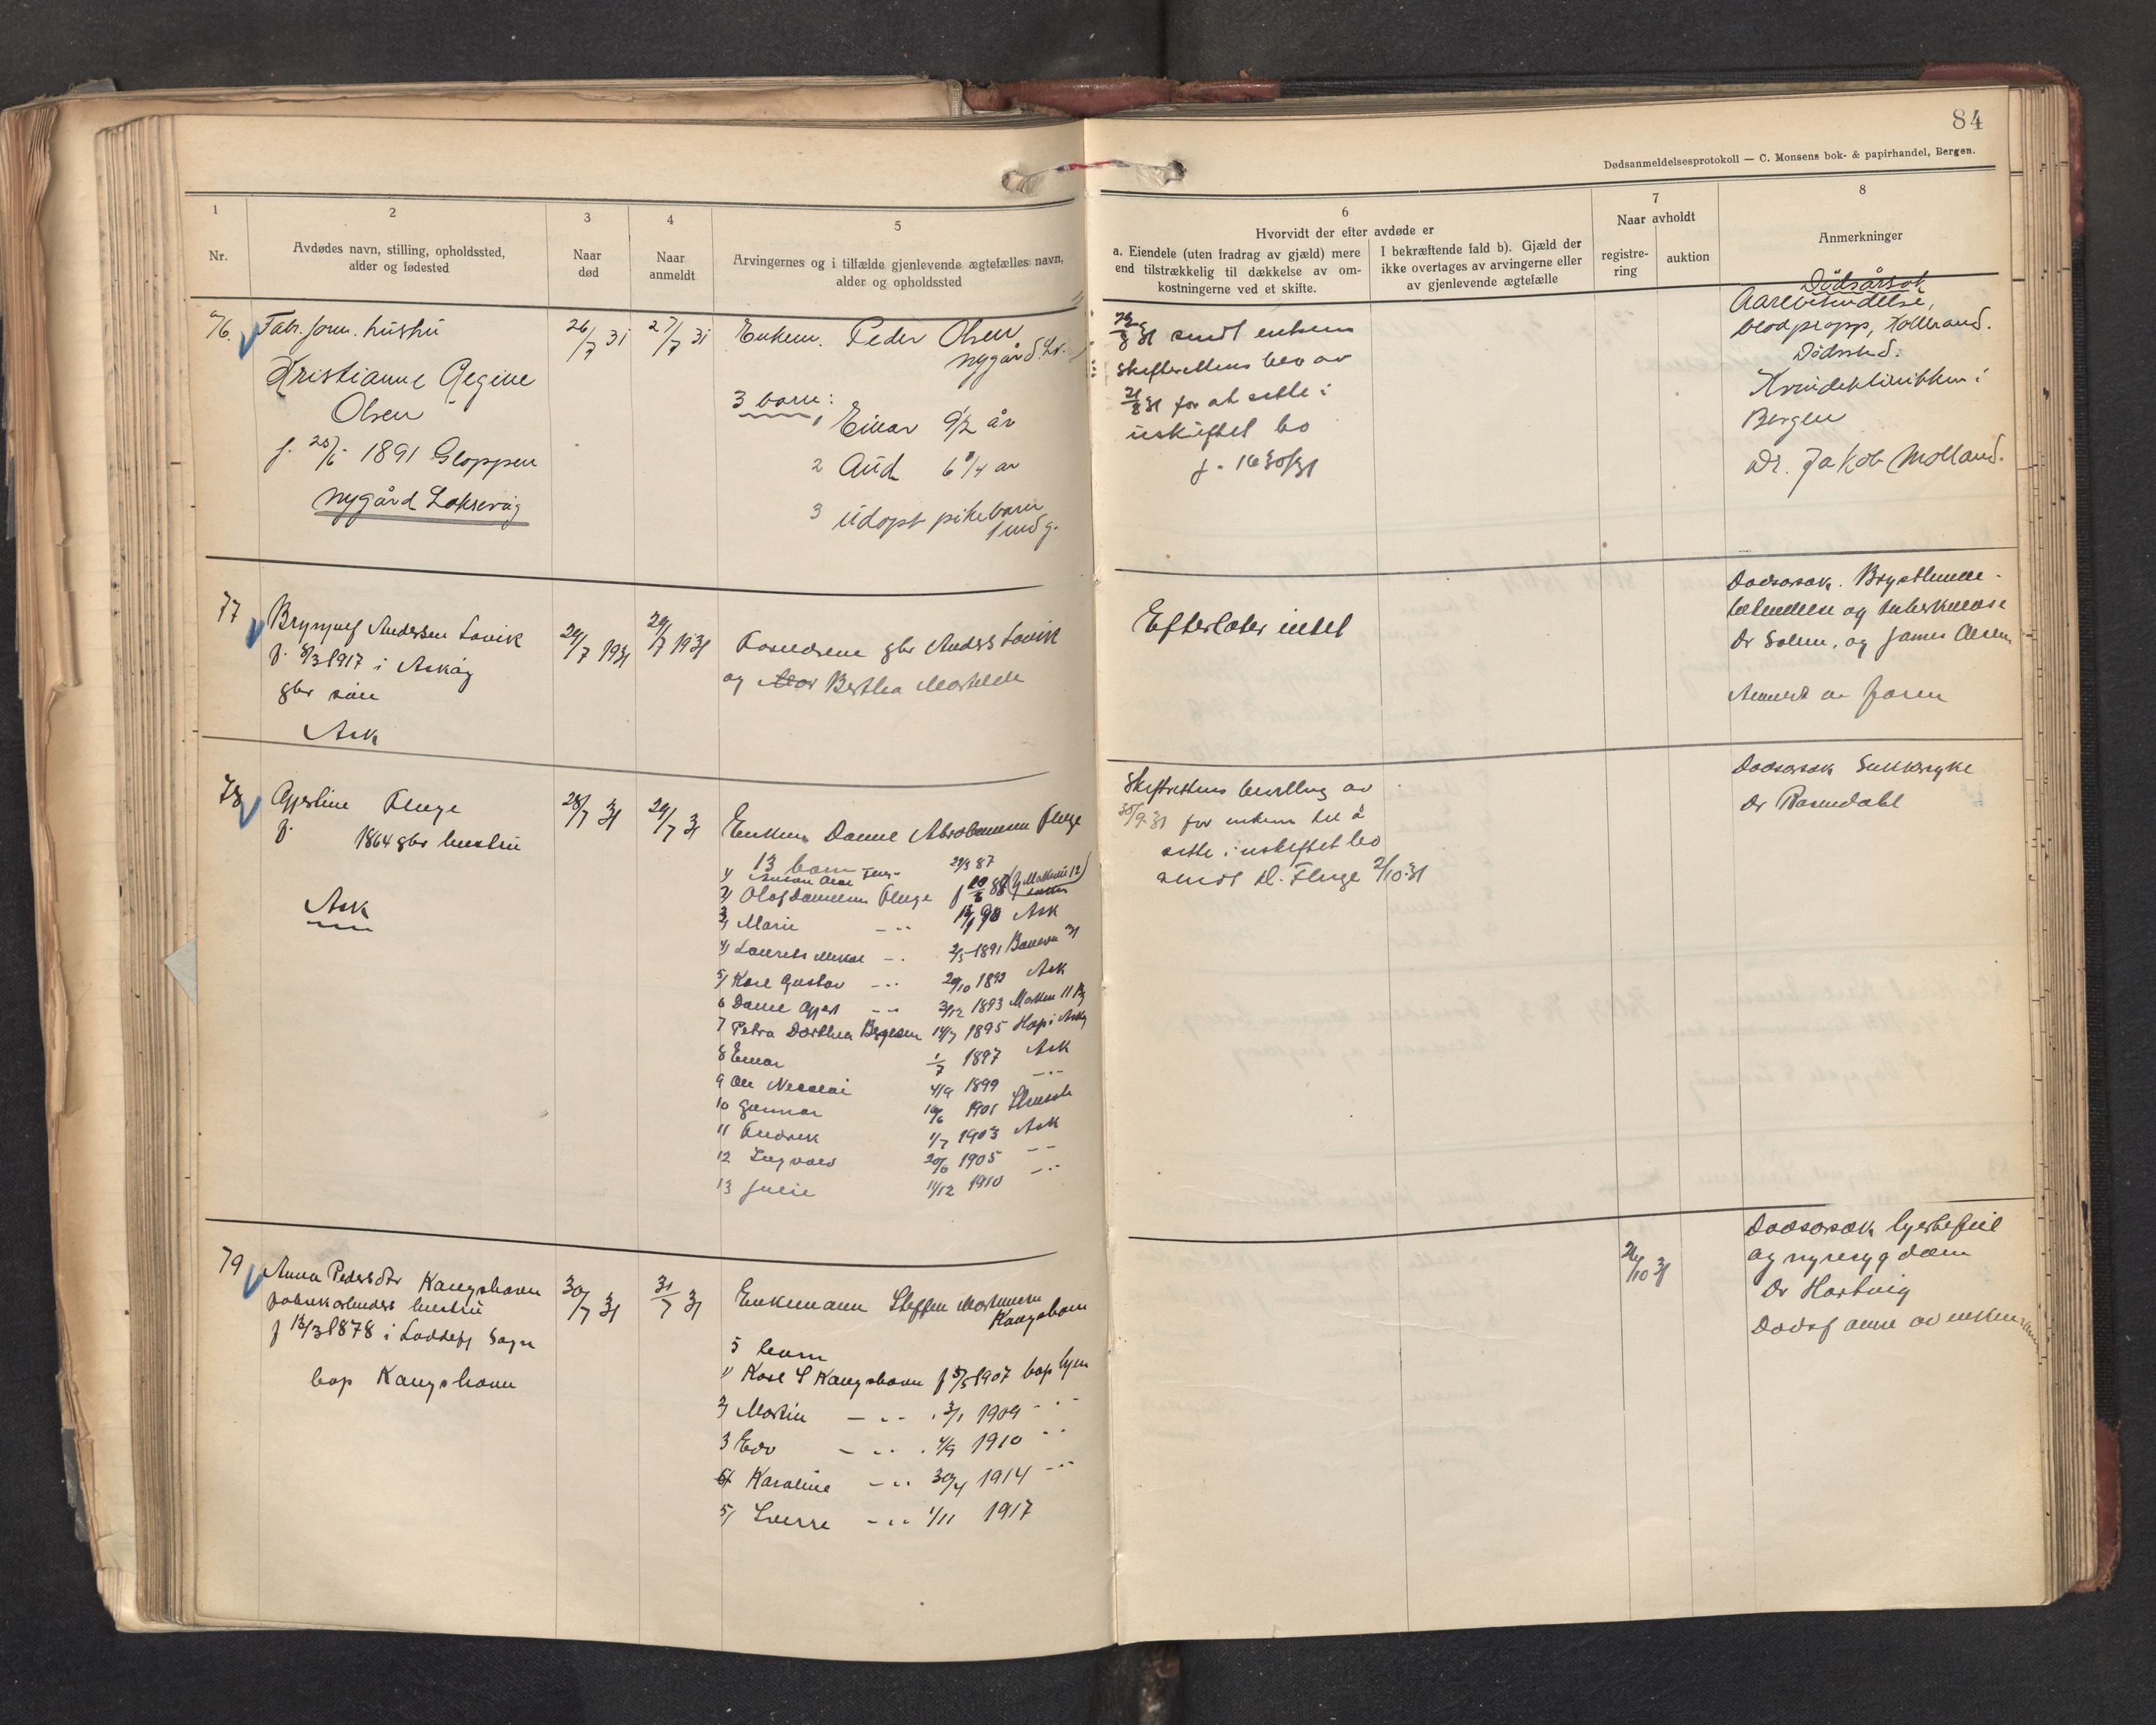 84
Dødsanmeldelsesprotokoll — C. Monsens bok- & papirhandel, Bergen.
1
Nr.
2
Avdødes navn, stilling, opholdssted,
alder og fødested
3
Naar
død
4
Naar
anmeldt
5
Arvingernes og i tilfælde gjenlevende ægtefælles navn,
alder og opholdssted
6
Hvorvidt der efter avdøde er
a. Eiendele (uten fradrag av gjæld) mere
end tilstrækkelig til dækkelse av om-
kostningerne ved et skifte.
I bekræftende fald b). Gjæld der
ikke overtages av arvingerne eller
av gjenlevende ægtefælle
7
Naar avholdt
registre-
ring
auktion
8
Anmerkninger
76.
Fabr. form. hustru
Kristianne Regine
Olsen
f. 1891 Gloppen
Nygård Laksevåg
26/7 31
27/7 31
Enkem. Peder Olsen
Nygård. Lv.
3 barn:
1 Einar 9½ år
2 Aud 6 3/4 år
3 Udøpt pikebarn
1 md g.
sendt enkem
skifterettens bev av
for at sitte i
uskiftet bo
Dødsårsak
Aarebetændelse,
blodpropp, Koldbrand.
Dødssted.
Kvindeklinikken i
Bergen
Dr. Jakob Molland.
77
Brynjulf Andersen Lavik
f. 8/3 1917 i Askøy
gbr søn
Ask
29/7 1931
29/7 1931
Forældrene gbr Anders Lavik
og Mor Bertha Mathilde
Efterlater intet
Dødsorsak. Brysthinde-
betendelse og tuberkulose
Dr Solem, og James Olsen
Anmeldt av faren
78
Gjertine Fluge
f. 1864 gbr hustru
Ask
28/7 31
29/7 31
Enkem Daniel Abrahamsen Fluge
13 barn
1)
29/3 87
2) Olaf Danielsen Fluge
3) Marie
Ask
4) Laurits Mikal 2/5 1891
5) Karl Gustav 29/10 1892 Ask
6 Daniel Gjert 31/12 1893 Marken 11 Bg
7 Petra Dorthea Bergesen 14/7 1895 Hop i Askøy
8 Einar 1/7 1897 Ask
9 Ole Nicolai 4/9 1899
10 Gunnar 10/6 1901
11 Fredrik 1/7 1903 Ask
12 Ingvald 20/6 1905
13 Julie 11/12 1910
Skifterettens bevilling av
30/9-31 for enkem til å
sitte i uskiftet bo
sendt D. Fluge 2/10-31
Dødsorsak Sukkersyke
Dr Rosendahl
79
Anna Pedersdtr Kongshavn
fabrikarbeiders hustru
f 13/3 1878 i Sogn
bop Kongshavn
30/7 31
31/7 31
Enkemann Steffen Martinsen
Kongshavn
5 barn
1) Karl S Kongshavn f 3/5 1907 bop hjem
2) Martin 3/1 1909
3 Edv 4/9 1910
4 Karoline 30/4 1914
5) Sverre 1/11 1917
26/10 31
Dødsorsak hjertefeil
og nyresygdom
Dr Hartvig
Dødsf anm av enkemann